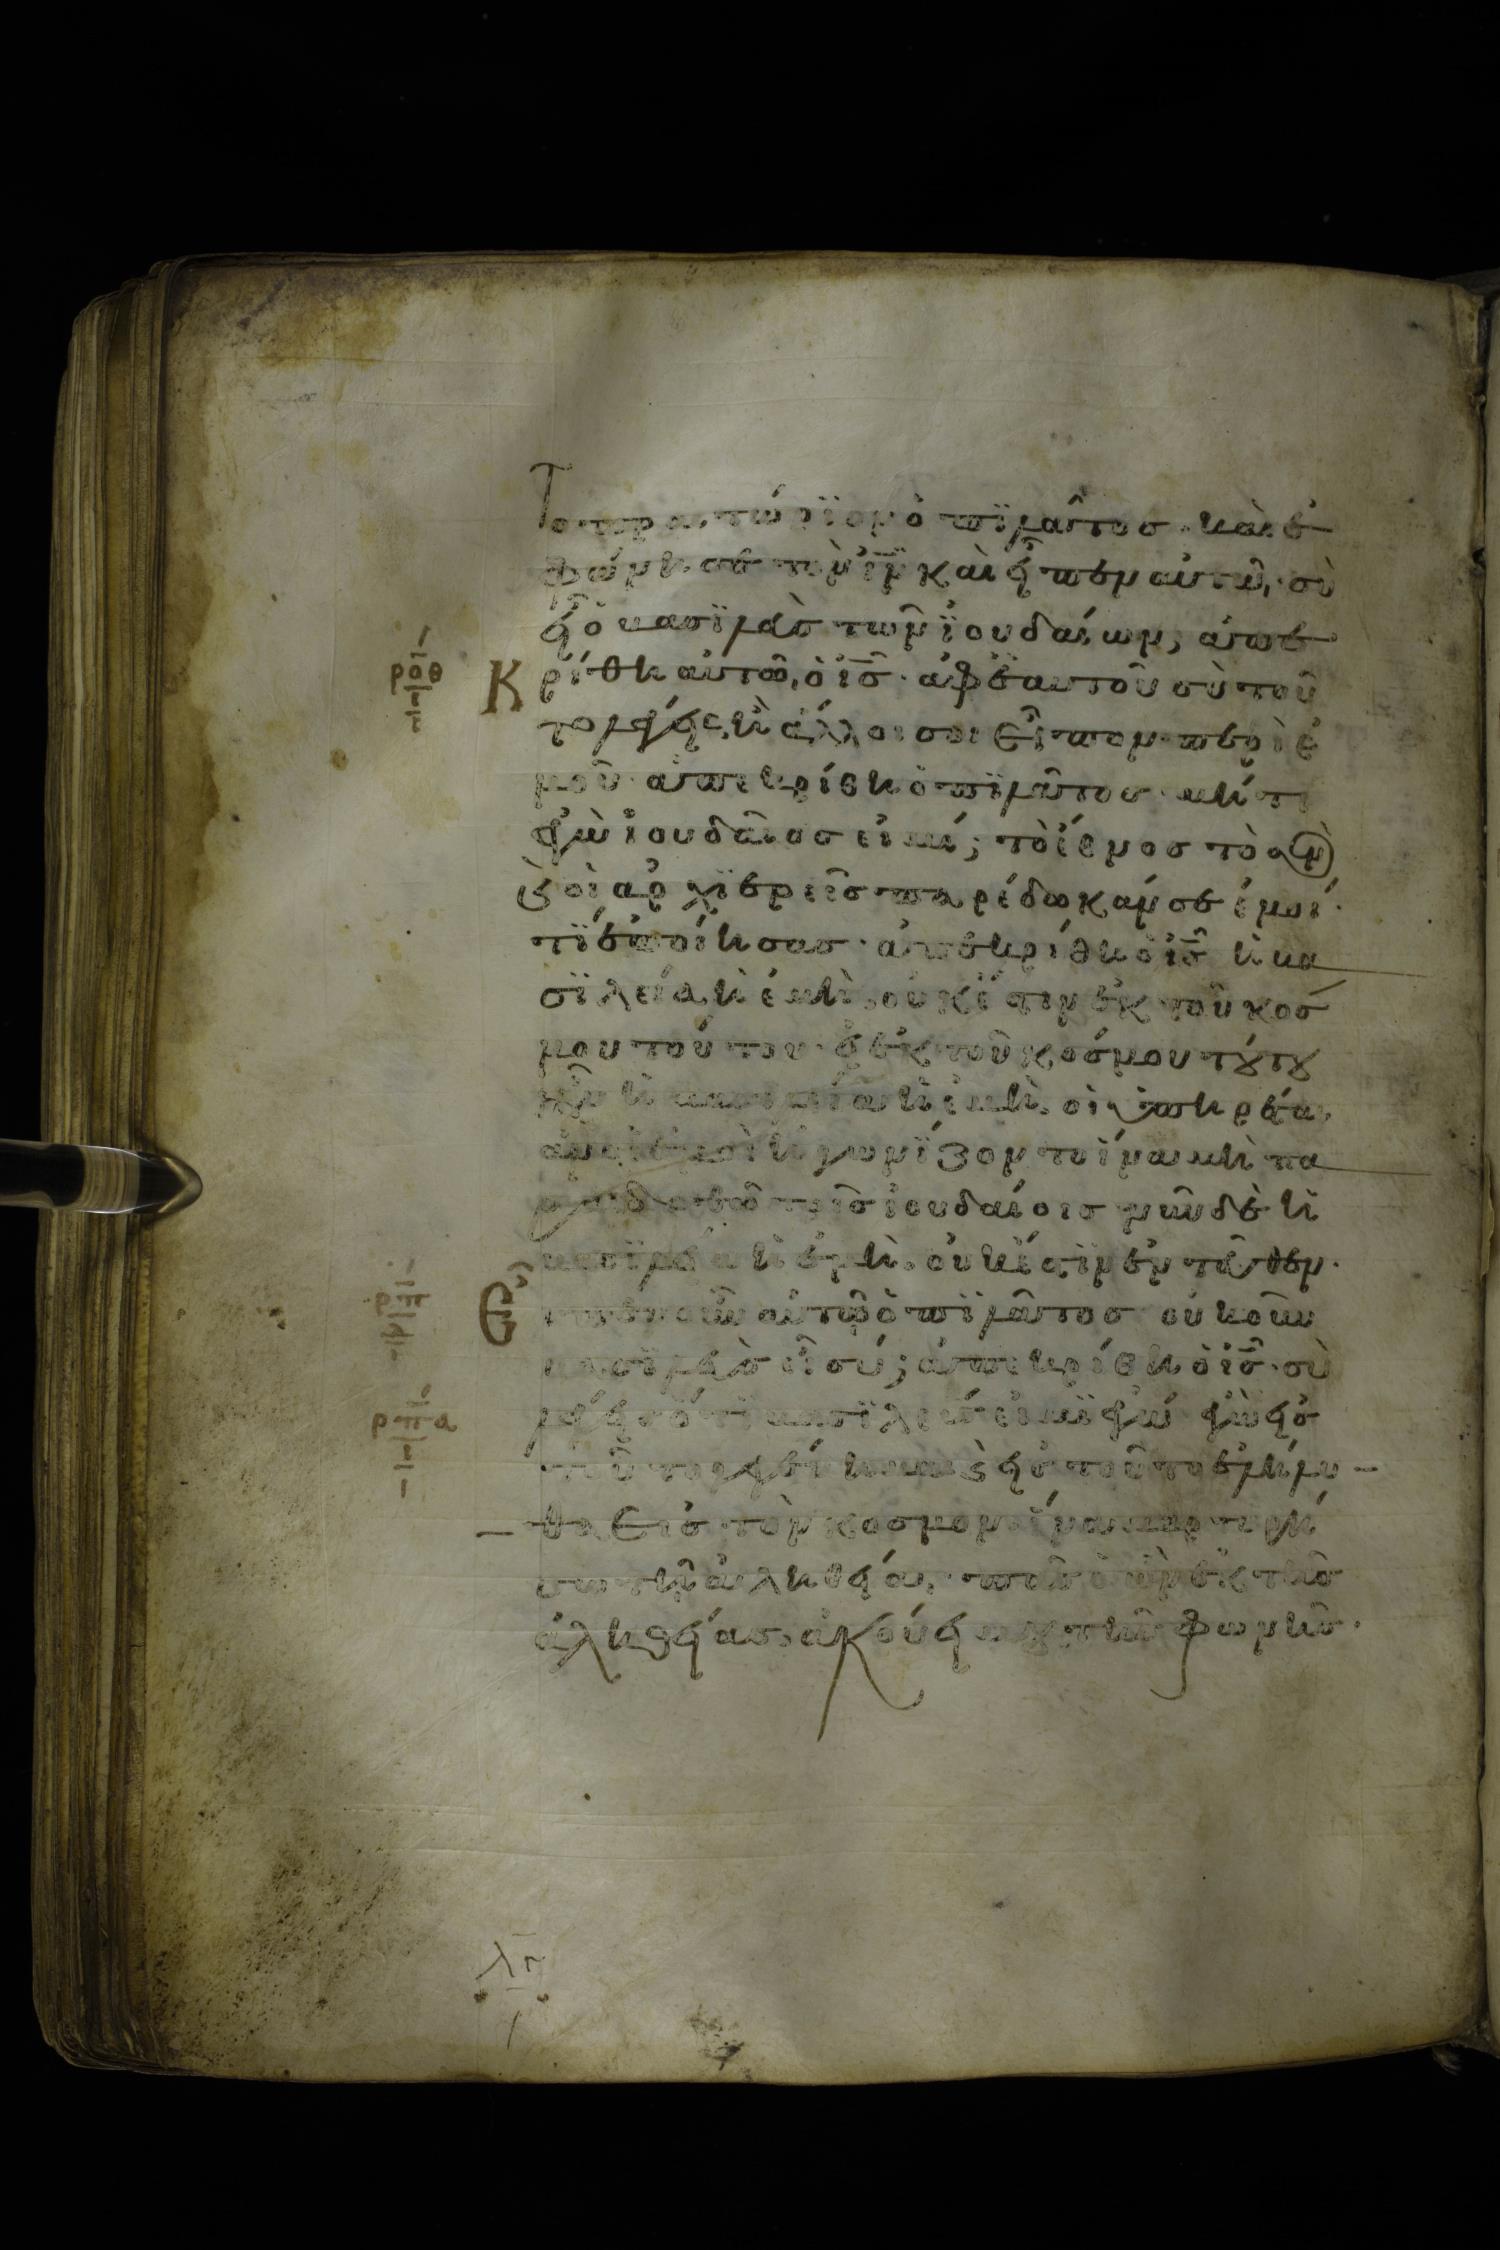 Το πραιτώριον ὁ πϊλᾶτος· καὶ ἐ
φώνησε τὸν ἰ̅ν̅ καὶ εἶπεν αὐτῶ· σὺ
εἶ ὁ βασϊλεὺς τῶν ϊουδαίων; ἀπε
Κρίθη αὐτῶ ὁ ἰ̅ς̅· ἀφ' ἑαυτοῦ σὺ τοῦ
το λέγεις, ἢ ἄλλοι σοι εἶπον περὶ ἐ
μοῦ· ἀπεκρίθη ὁ πϊλᾶτος· μήτι
ἐγὼ ἰουδαῖος εἰμί; τὸ ἔθνος τὸ σὸν
ϗ οἱ ἀρχϊερεῖς παρέδωκάν σε ἐμοί·
τϊ ἐποίησας· ἀπεκρίθη ὁ ἰ̅ς̅ ἡ βα
σϊλεία ἡ ἐμὴ, οὐκ ἔστιν ἐκ τοῦ κόσ
μου τούτου· εἰ ἐκ τοῦ κόσμου τȣ́τȣ
ἦν ἡ βασιλεία ἡ ἐμὴ, οἱ ὑπηρέται
ἂν οἱ ἐμοὶ ἠγωνίζοντο ἵνα μὴ πα
ραδοθῶ τοῖς ἰουδαίοις νῦν δὲ ἡ
βασϊλεία ἡ ἐμὴ, οὐκ ἔστϊν ἐντεῦθεν·
Εἶπεν οὖν αὐτῶ ὁ πϊλᾶτος οὐκοῦν
βασϊλεὺς εἶ σύ; ἀπεκρίθη ὁ ἰ̅ς̅· σὺ
λέγεις ὅτϊ βασϊλεύς εἰμϊ ἐγώ ἐγὼ εἰς
τοῦτο γεγέννημαι ϗ εἰς τοῦτο ἐλήλυ
θα εἰς τὸν κόσμον ἵνα μαρτυρή
σω τῆ ἀληθεία, πᾶς ὁ ὢν ἐκ τῆς
ἀληθείας, ἀκούει μου τῆς φωνῆς·
ρο̅θ
ι
ρ̅π
ρ̅πα